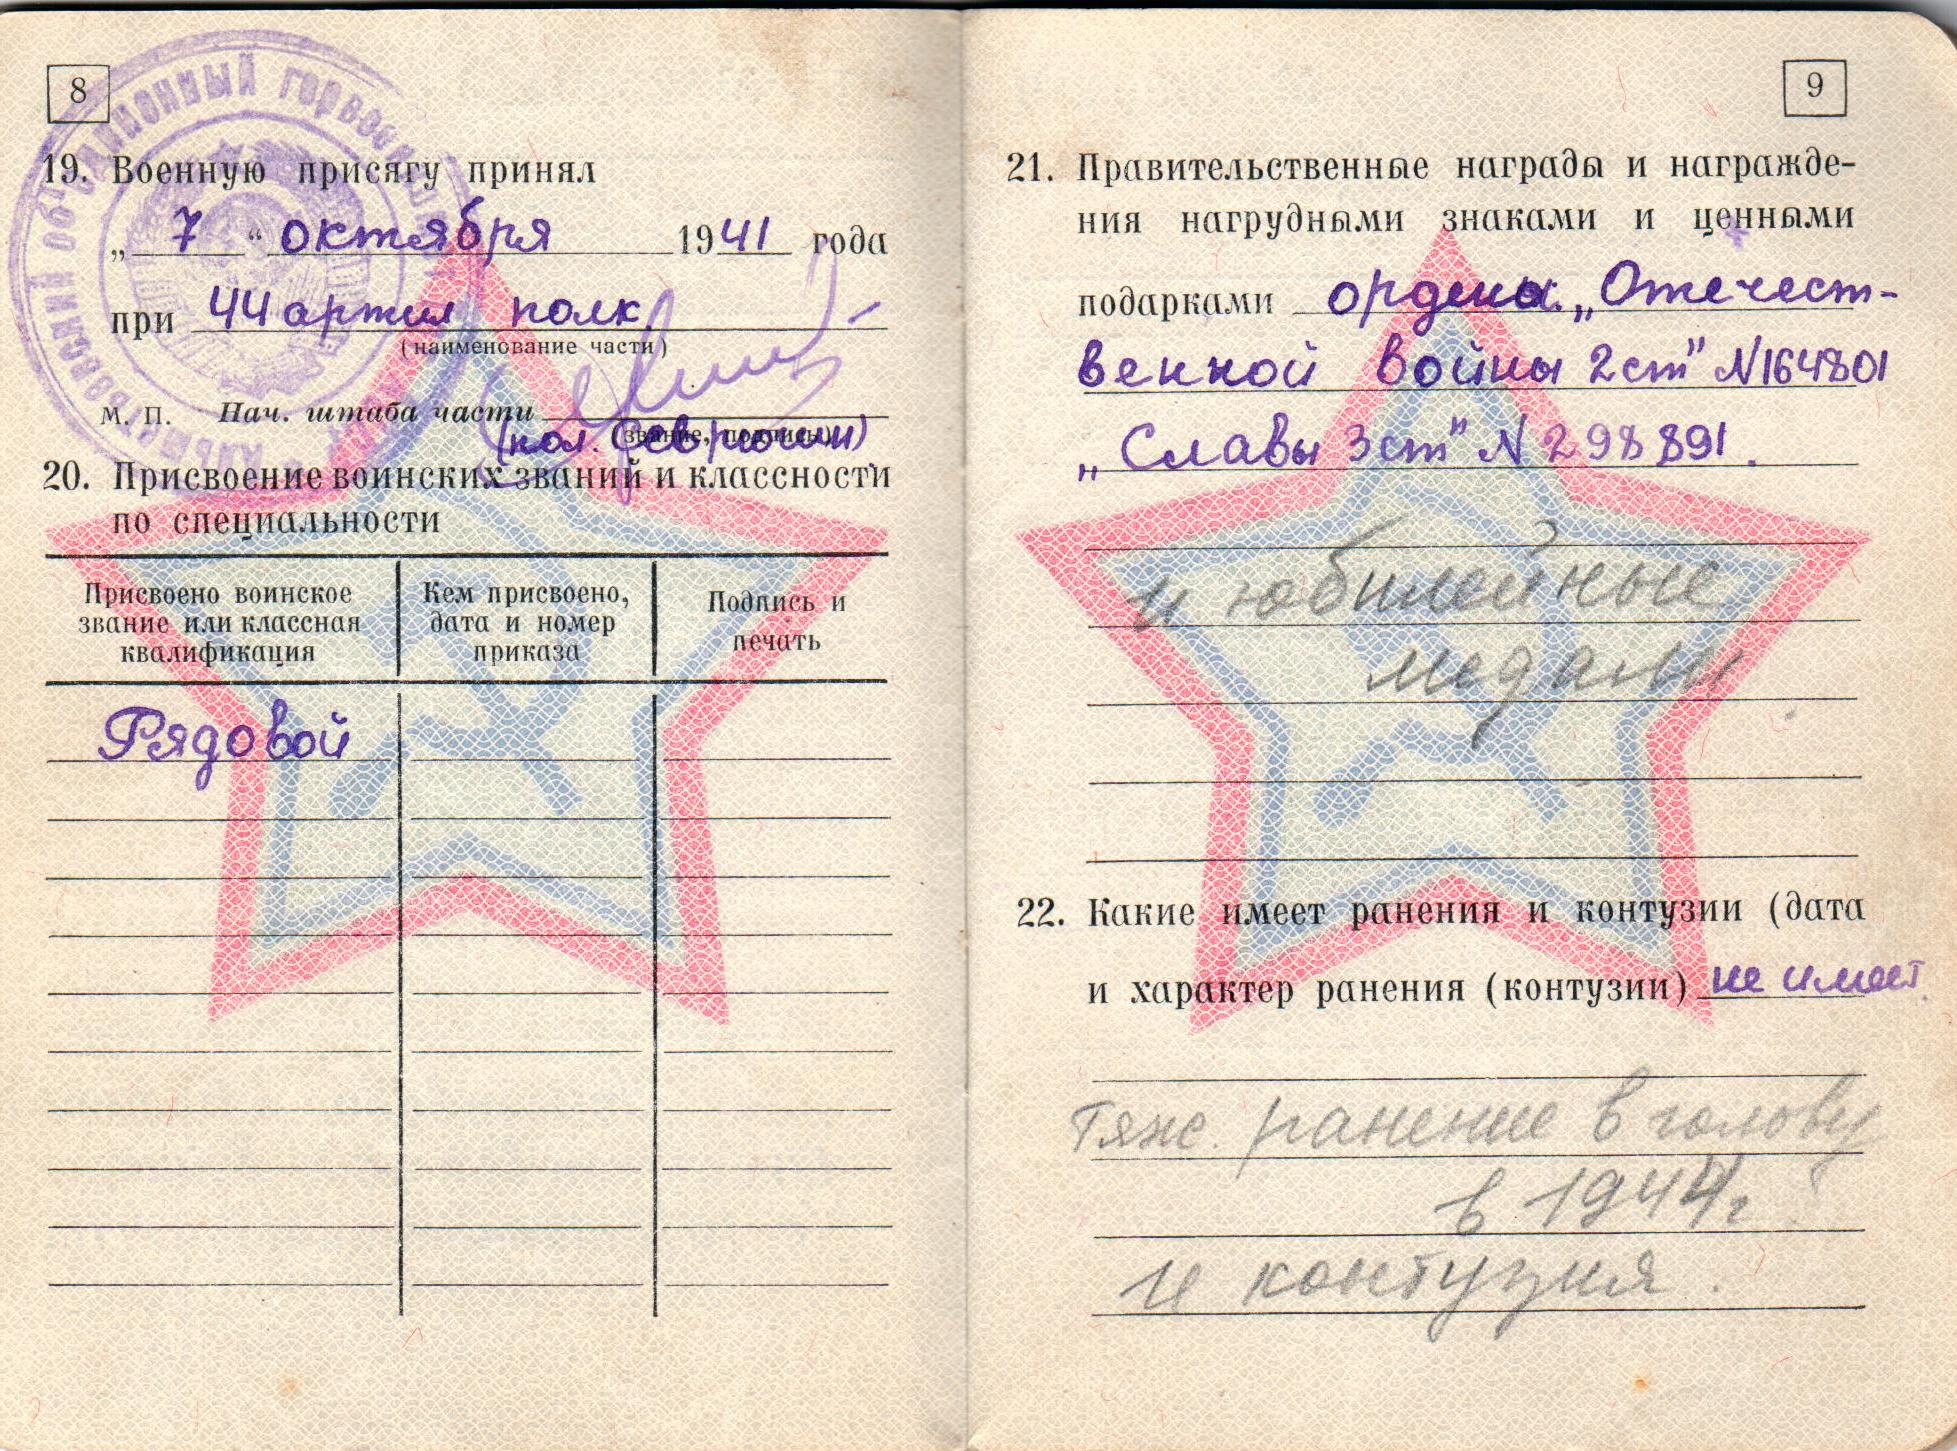 8
19. Военную присягу принял
„ 7 “ октября 1941 года
при 44 артил полк.
(наименование части)
М. П. Нач. штаба части
(звание, подпись)
(кол.
20. Присвоение воинских званий и классности
по специальности
Присвоено воинское звание или классная квалификация
Кем присвоено, дата и номер приказа
Подпись и печать
Рядовой
9
21. Правительственные награды и награжде-
ния нагрудными знаками и ценными
подарками ордена „Отечест-
венной войны 2ст" N164801
„Славы 3ст" N 298891.
и юбилейные
медали
22. Какие имеет ранения и контузии (дата
и характер ранения (контузии) не имеет.
Тяж. ранение в голову
в 1944г
и контузия.